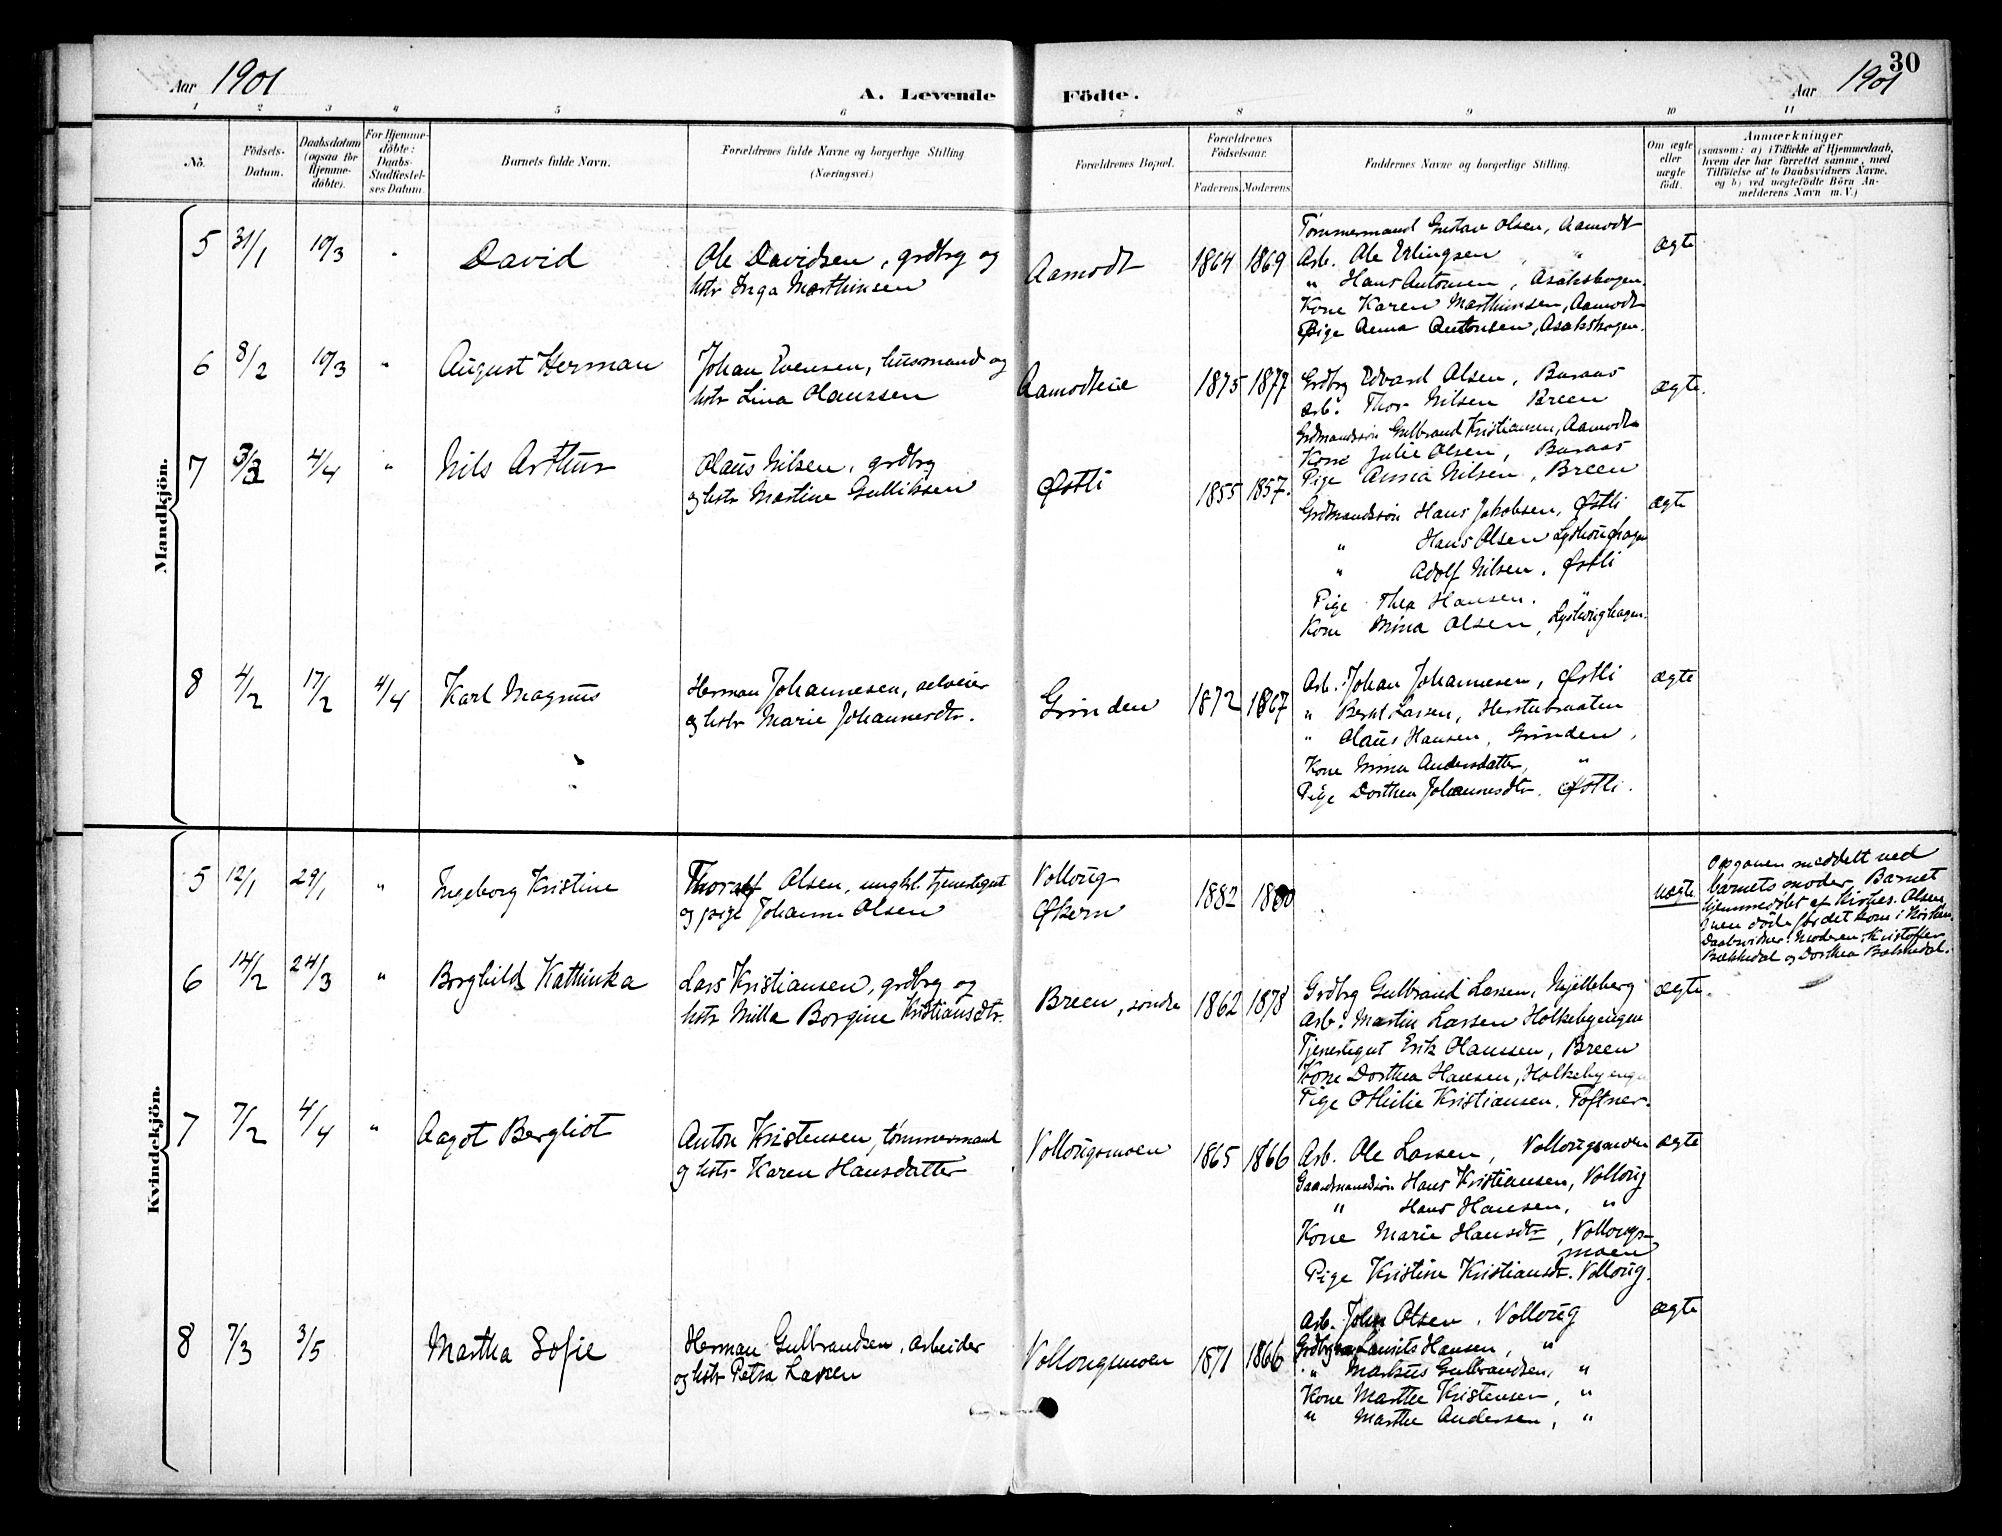 30
Aar 1901
A. Levende Födte.
Aar 1901
1 2 3 4 5 6 7 8 9 10 11
No.
Födsels-Datum.
Daabsdatum (ogsaa for Hjemme-döbte).
For Hjemme-döbte: Daabs-Stadfæstel-ses Datum.
Barnets fulde Navn.
Forældrenes fulde Navne og borgerlige Stilling
(Næringsvei.)
Forældrenes Bopæl.
Forældrenes Födselsaar.
Faderens. Moderens.
Faddernes Navne og borgerlige Stilling.
Om ægte eller uægte födt.
Anmærkninger
(saasom: a) i Tilfælde af Hjemmedaab,
hvem der har forrettet samme, med
Tilföielse af to Daabsvidners Navne,
og b) ved uægtefödte Börn An-
melderens Navn m. V.)
Mandkjön.
5 31/1 10/3 " David
Ole Davidsen, grdbrg og
hstr Inga Marthinsen
Aamodt 1864 1869
Tømmermand Gustav Olsen, Aamodt
Arb. Ole Erlingsen, "
" Hans Antonsen, Asakshagen.
Kone Karen Marthinsen, Aamodt
Pige Anna Antonsen, Asakshagen.
ægte
6 8/2 10/3 " August Herman
Johan Evensen, husmand og
hstr Lina Olaussen
Aamodteie 1875 1877
Grdbrg Edvard Olsen, Buraas
Arb. Thor Nilsen Breen
Grdmandssøn Gulbrand Kristiansen, Aamodt
Kone Julie Olsen, Buraas
Pige Anna Nilsen, Breen
ægte.
7 3/3 4/4 " Nils Arthur
Olaus Nilsen, grdbrg
og hstr Martine Gulliksen
Østli 1855 1857.
Grdmandssøn Hans Jakobsen, Østli
" Hans Olsen
" Adolf Nilsen, Østli
Pige Thea Hansen. "
Kone Mina Olsen,
ægte
8 4/2 17/2 4/4 Karl Magnus
Herman Johannesen, selveier
og hstr Marie Johannesdtr.
Grinden 1872 1867
Arb. Johan Johannesen, Østli
" Bernt Larsen,
" Olaus Hansen, Grinden,
Kone Mina Andersdatter, "
Pige Dorthea Johannesdtr. Østli.
ægte
Kvindekjön.
5 12/1 29/1 " Ingeborg Kristine
Thoralf Olsen, ungkl. tjenestegut
og pige Johanne Olsen
Volloug
Økern
1882 1880
uægte
Opgaven meddelt ved
barnets moder. Barnet
hjemmedøbt af Kirkes. Olsen
men døde før det kom i Kirken.
Daabsvidner: Moderen, Kristoffer
Bakkedal og Dorthea Bakkedal.
6 14/2 24/3 " Borghild Kathinka
Lars Kristiansen, grdbrg og
hstr Milla Borgine Kristiansdtr.
Breen, søndre 1862 1878
Grdbrg Gulbrand Larsen, Mjelleberg
Arb. Martin Larsen Holkebyengen
Tjenestegut Erik Olaussen, Breen
Kone Dorthea Hansen, Holkebyengen
Pige Othilie Kristiansen, Toftner.
ægte.
7 7/2 4/4 " Aagot Bergliot
Anton Kristensen, tømmermand
og hstr Karen Hansdatter
Vollougsmoen 1865 1866
Arb. Ole Larsen, Vollougsmoen
Gaardmandssøn Hans Kristiansen, Volloug
" Hans Hansen, "
Kone Marie Hansdtr, Vollougs-
moen
Pige Kristine Kristiansdtr. Volloug.
ægte
8 7/3 3/5 Martha Sofie
Herman Gulbrandsen, arbeider
og hstr Petra Larsen
Vollougsmoen 1871 1866
Arb. John Olsen, Volloug
Laurits Hansen, "
" Markus Gulbrandsen, "
Kone Marthe Kristensen, "
" Marthe Andersen, "
ægte